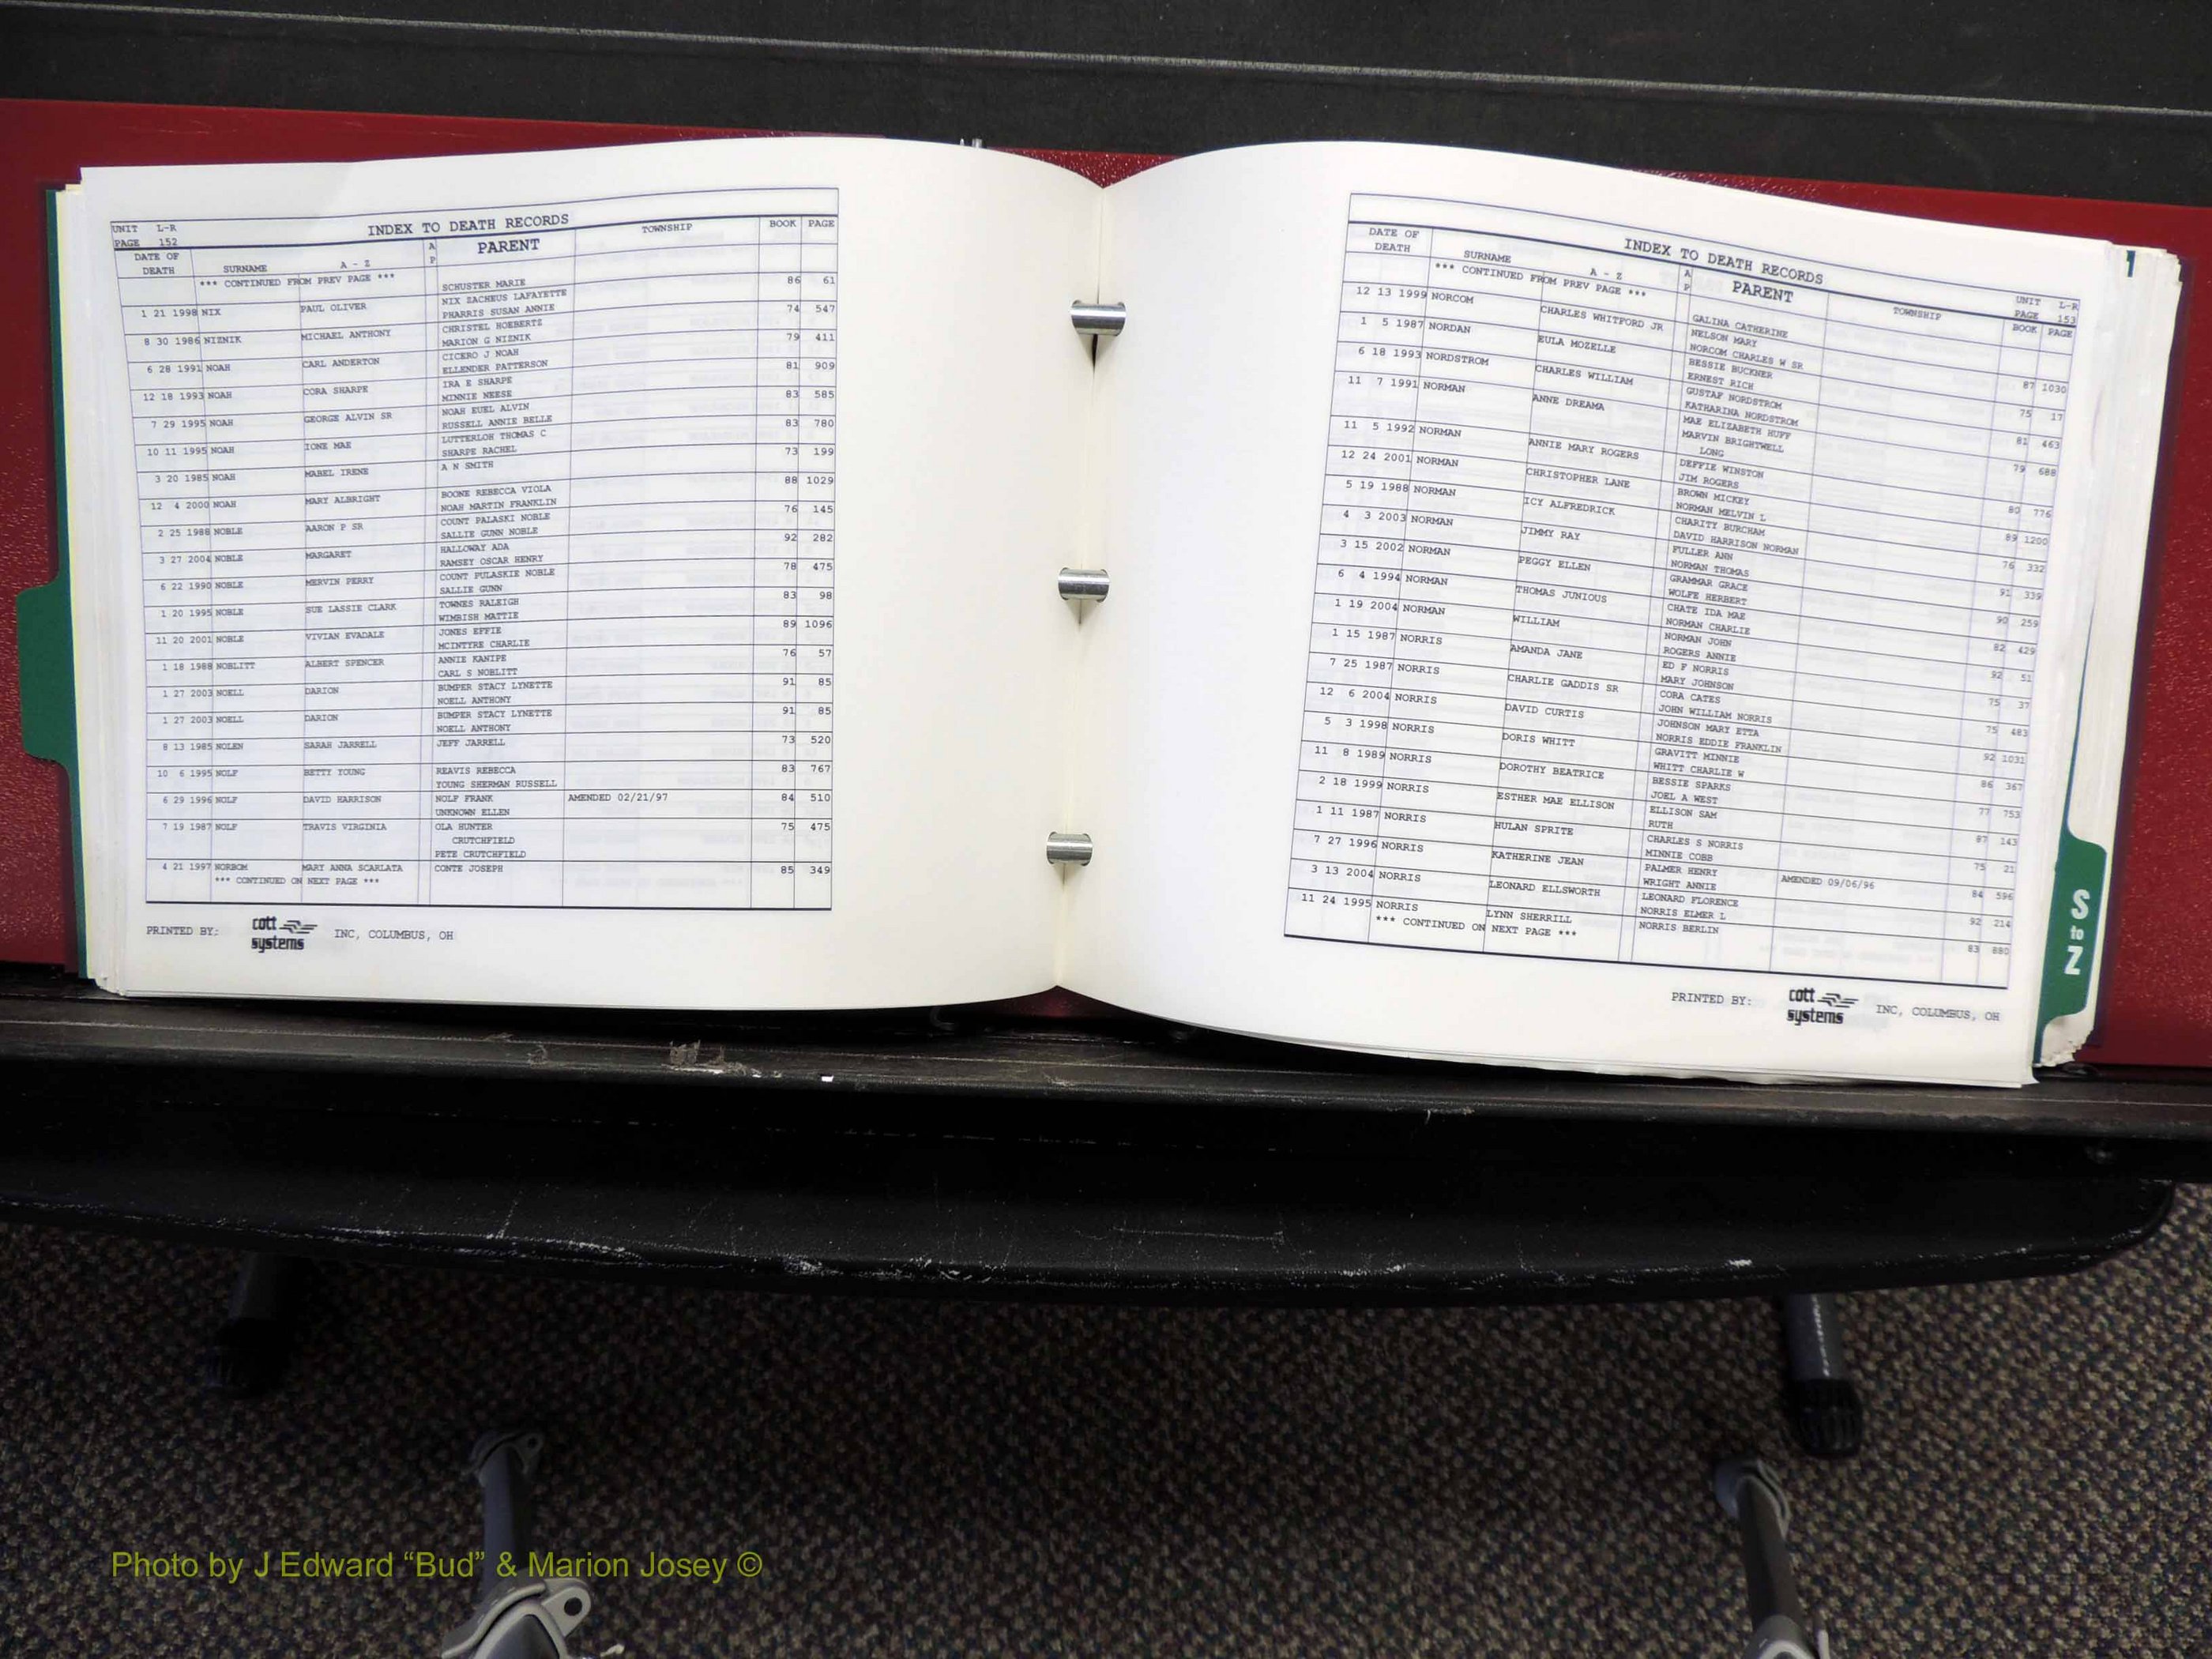 UNIT L-R
PAGE 152
INDEX TO DEATH RECORDS
DATE OF DEATH SURNAME A - Z A P PARENT TOWNSHIP BOOK PAGE
*** CONTINUED FROM PREV PAGE *** SCHUSTER MARIE 86 61
NIX ZACHEUS LAFAYETTE
1 21 1998 NIX PAUL OLIVER PHARRIS SUSAN ANNIE 74 547
CHRISTEL HOEBERTZ
8 30 1986 NIZNIK MICHAEL ANTHONY MARION G NIZNIK 79 411
CICERO J NOAH
6 28 1991 NOAH CARL ANDERTON ELLENDER PATTERSON 81 909
IRA E SHARPE
12 18 1993 NOAH CORA SHARPE MINNIE NEESE 83 585
NOAH EUEL ALVIN
7 29 1995 NOAH GEORGE ALVIN SR RUSSELL ANNIE BELLE 83 780
LUTTERLOH THOMAS C
10 11 1995 NOAH IONE MAE SHARPE RACHEL 73 199
A N SMITH
3 20 1985 NOAH MABEL IRENE 88 1029
BOONE REBECCA VIOLA
12 4 2000 NOAH MARY ALBRIGHT NOAH MARTIN FRANKLIN 76 145
COUNT PALASKI NOBLE
2 25 1988 NOBLE AARON P SR SALLIE GUNN NOBLE 92 282
HALLOWAY ADA
3 27 2004 NOBLE MARGARET RAMSEY OSCAR HENRY 78 475
COUNT PULASKIE NOBLE
6 22 1990 NOBLE MERVIN PERRY SALLIE GUNN 83 98
TOWNES RALEIGH
1 20 1995 NOBLE SUE LASSIE CLARK WIMBISH MATTIE 89 1096
JONES EFFIE
11 20 2001 NOBLE VIVIAN EVADALE MCINTYRE CHARLIE 76 57
ANNIE KANIPE
1 18 1988 NOBLITT ALBERT SPENCER CARL S NOBLITT 91 85
BUMPER STACY LYNETTE
1 27 2003 NOELL DARION NOELL ANTHONY 91 85
BUMPER STACY LYNETTE
1 27 2003 NOELL DARION NOELL ANTHONY
8 13 1985 NOLEN SARAH JARRELL JEFF JARRELL 73 520
10 6 1995 NOLF BETTY YOUNG REAVIS REBECCA 83 767
YOUNG SHERMAN RUSSELL
6 29 1996 NOLF DAVID HARRISON NOLF FRANK AMENDED 02/21/97 84 510
UNKNOWN ELLEN
7 19 1987 NOLF TRAVIS VIRGINIA OLA HUNTER 75 475
CRUTCHFIELD
PETE CRUTCHFIELD
4 21 1997 NORBOM MARY ANNA SCARLATA CONTE JOSEPH 85 349
*** CONTINUED ON NEXT PAGE ***
PRINTED BY: cott systems INC, COLUMBUS, OH
INDEX TO DEATH RECORDS
UNIT L-R
PAGE 153
DATE OF DEATH SURNAME A - Z A P PARENT TOWNSHIP BOOK PAGE
*** CONTINUED FROM PREV PAGE *** GALINA CATHERINE
12 13 1999 NORCOM CHARLES WHITFORD JR NELSON MARY 87 1030
NORCOM CHARLES W SR
1 5 1987 NORDAN EULA MOZELLE BESSIE BUCKNER 75 17
ERNEST RICH
6 18 1993 NORDSTROM CHARLES WILLIAM GUSTAF NORDSTROM 81 463
KATHARINA NORDSTROM
11 7 1991 NORMAN ANNE DREAMA MAE ELIZABETH HUFF 79 688
MARVIN BRIGHTWELL
LONG
11 5 1992 NORMAN ANNIE MARY ROGERS DEFFIE WINSTON 80 776
JIM ROGERS
12 24 2001 NORMAN CHRISTOPHER LANE BROWN MICKEY 89 1200
NORMAN MELVIN L
5 19 1988 NORMAN ICY ALFREDRICK CHARITY BURCHAM 76 332
DAVID HARRISON NORMAN
4 3 2003 NORMAN JIMMY RAY FULLER ANN 91 339
NORMAN THOMAS
3 15 2002 NORMAN PEGGY ELLEN GRAMMAR GRACE 90 259
WOLFE HERBERT
6 4 1994 NORMAN THOMAS JUNIOUS CHATE IDA MAE 82 429
NORMAN CHARLIE
1 19 2004 NORMAN WILLIAM NORMAN JOHN 92 51
ROGERS ANNIE
1 15 1987 NORRIS AMANDA JANE ED F NORRIS 75 37
MARY JOHNSON
7 25 1987 NORRIS CHARLIE GADDIS SR CORA CATES 75 483
JOHN WILLIAM NORRIS
12 6 2004 NORRIS DAVID CURTIS JOHNSON MARY ETTA 92 1031
NORRIS EDDIE FRANKLIN
5 3 1998 NORRIS DORIS WHITT GRAVITT MINNIE 86 367
WHITT CHARLIE W
11 8 1989 NORRIS DOROTHY BEATRICE BESSIE SPARKS 77 753
JOEL A WEST
2 18 1999 NORRIS ESTHER MAE ELLISON ELLISON SAM 87 143
RUTH
1 11 1987 NORRIS HULAN SPRITE CHARLES S NORRIS 75 21
MINNIE COBB
7 27 1996 NORRIS KATHERINE JEAN PALMER HENRY AMENDED 09/06/96 84 596
WRIGHT ANNIE
3 13 2004 NORRIS LEONARD ELLSWORTH LEONARD FLORENCE 92 214
NORRIS ELMER L
11 24 1995 NORRIS LYNN SHERRILL NORRIS BERLIN 83 880
*** CONTINUED ON NEXT PAGE ***
PRINTED BY: cott systems INC, COLUMBUS, OH
S
to
Z
Photo by J Edward “Bud” & Marion Josey ©